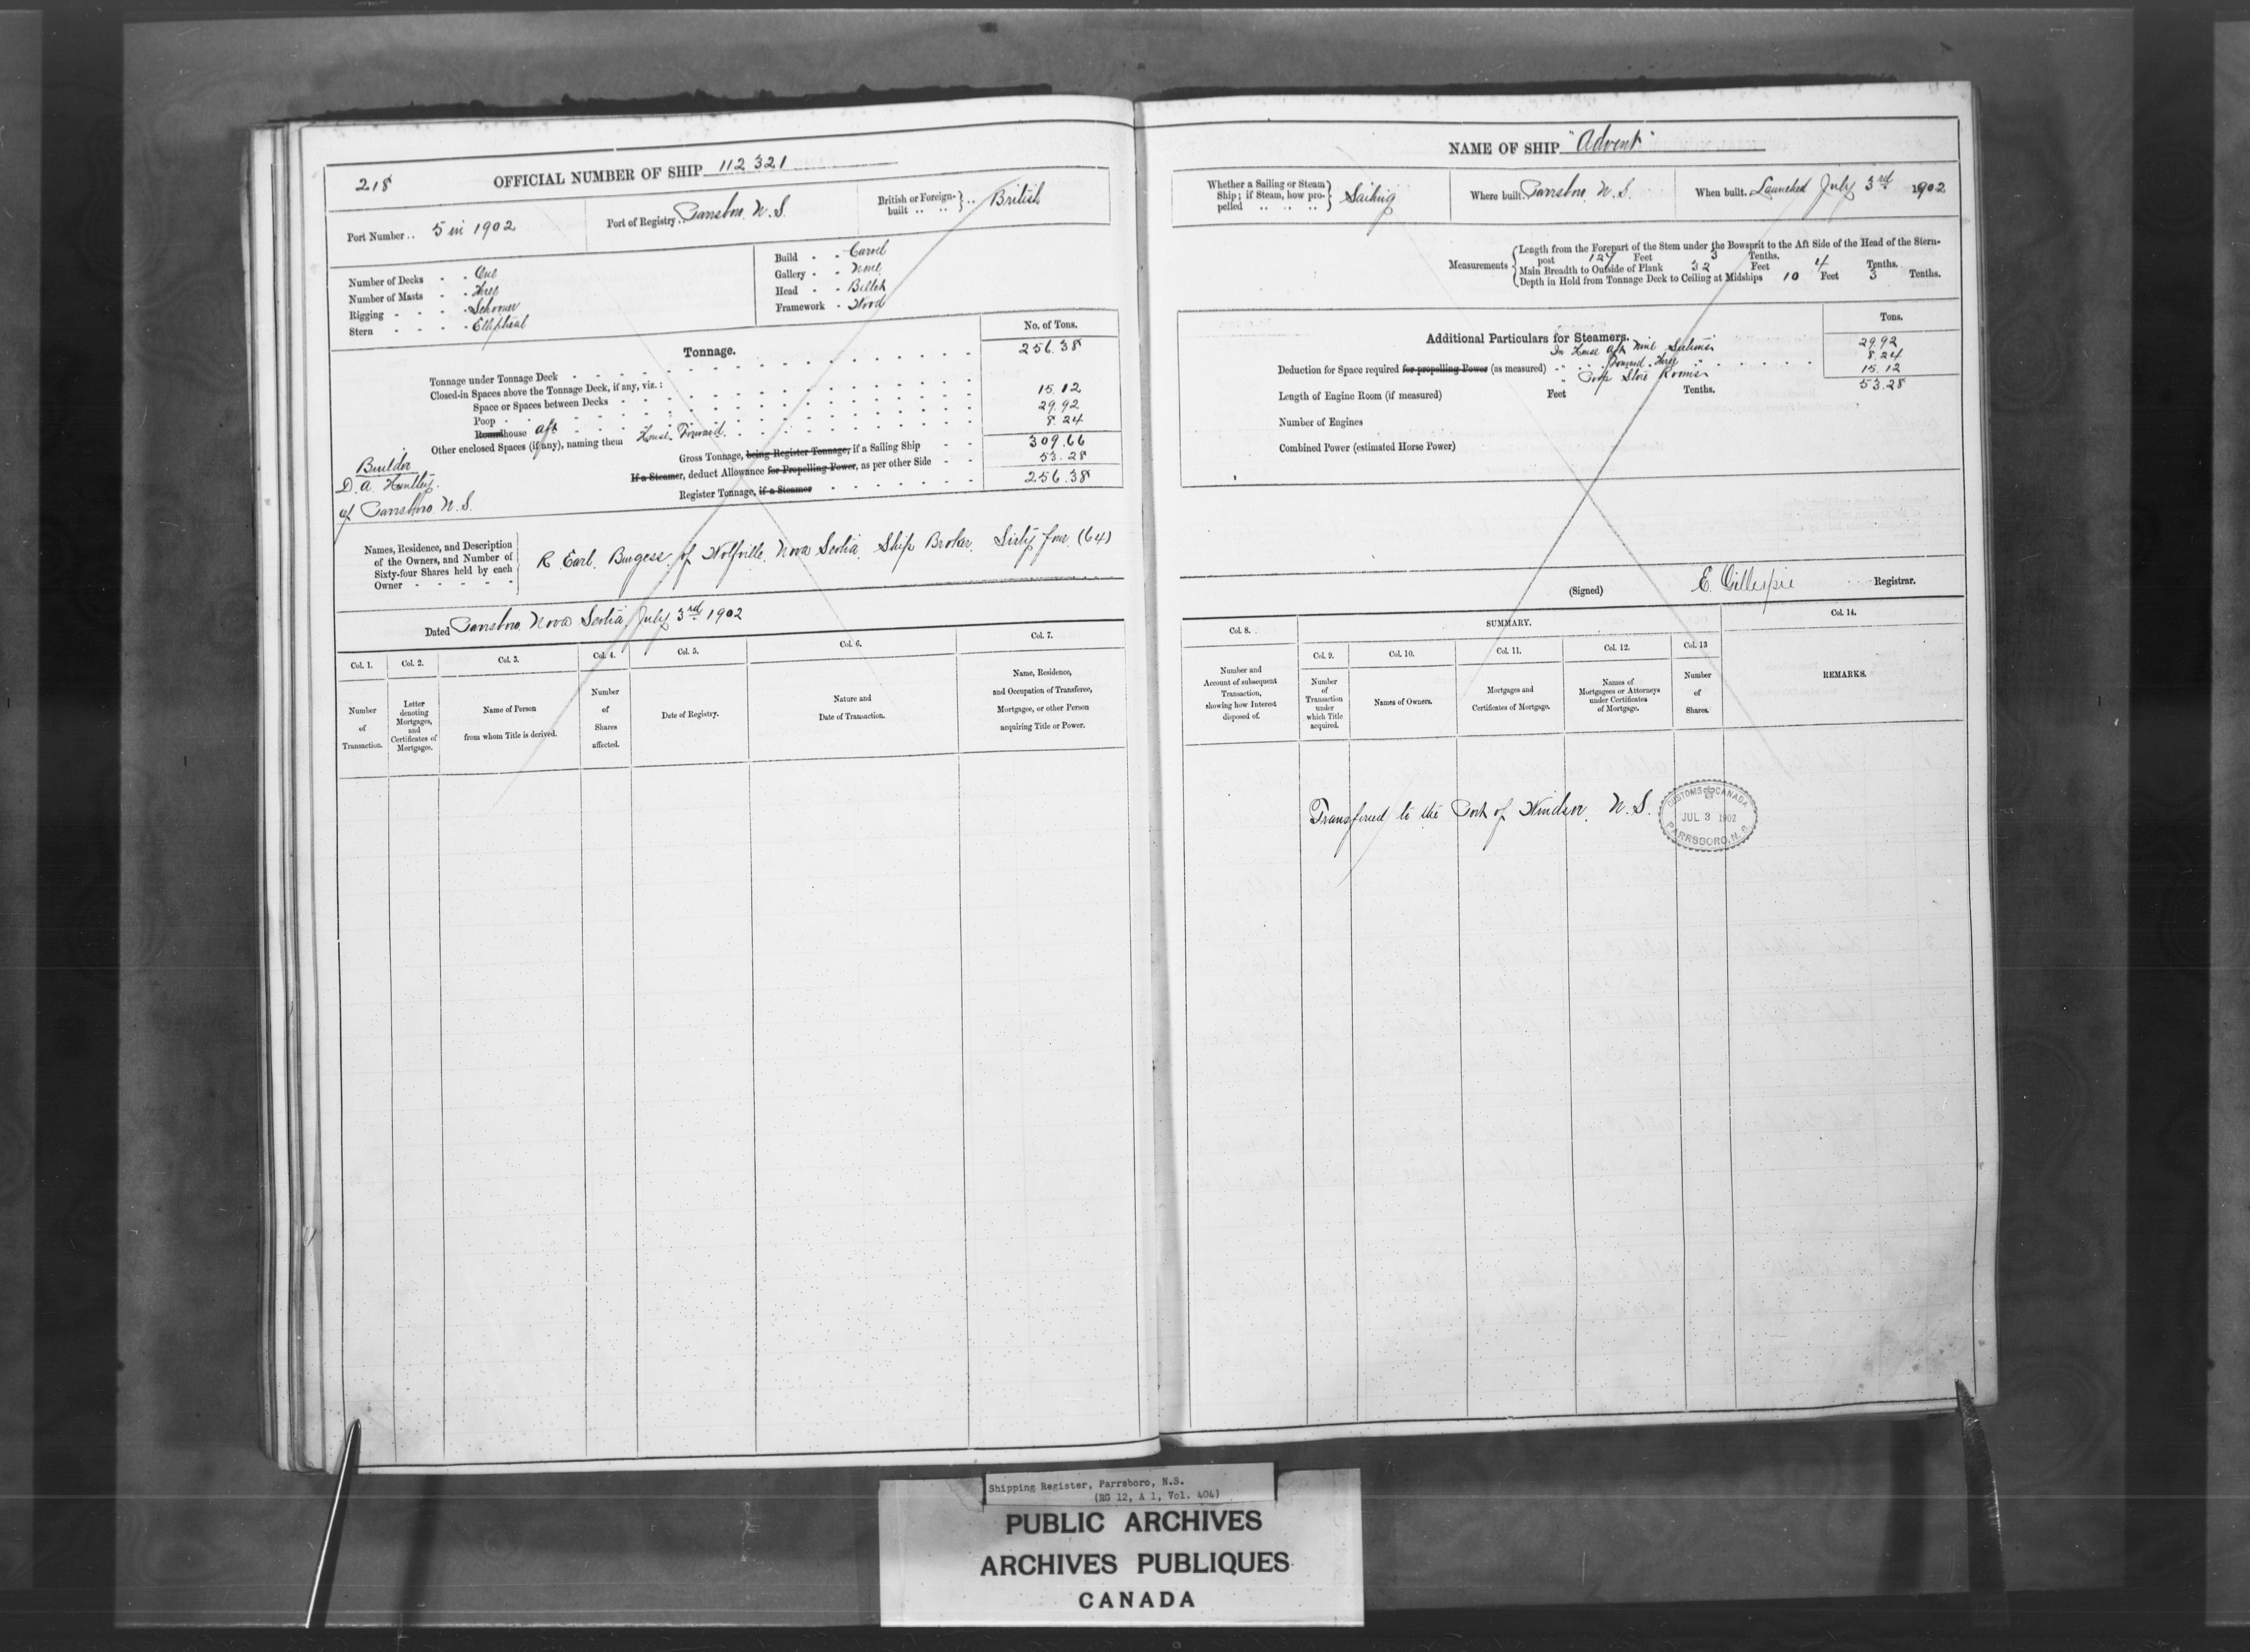 218
OFFICIAL NUMBER OF SHIP 112 321
Port Number .. 5 in 1902
Port of Registry .. Parrsboro, N.S.
British or Foreign-built .. .. } .. British
Number of Decks - - One
Number of Masts - - Three
Rigging - - - - Schooner
Stern - - - - Elliptical
Build - - Carvel
Gallery - - None
Head - - Billet
Framework - Wood
Tonnage.
No. of Tons.
Tonnage under Tonnage Deck 256.38
Closed-in Spaces above the Tonnage Deck, if any, viz.:
Space or Spaces between Decks
Poop 15.12
Roundhouse aft 29.92
Other enclosed Spaces (if any), naming them House Forward 8.24
Gross Tonnage, being Register Tonnage, if a Sailing Ship 309.66
If a Steamer, deduct Allowance for Propelling Power, as per other Side 53.28
Register Tonnage, if a Steamer 256.38
Builder
D. A. Huntley.
of Parrsboro N.S.
Names, Residence, and Description
of the Owners, and Number of
Sixty-four Shares held by each
Owner - - - - -
R Earl. Burgess. of Wolfville. Nova Scotia. Ship Broker. Sixty four (64)
Dated Parrsboro Nova Scotia, July 3rd 1902
Col. 1.
Number
of
Transaction.
Col. 2.
Letter
denoting
Mortgages,
and
Certificates of
Mortgages.
Col. 3.
Name of Person
from whom Title is derived.
Col. 4.
Number
of
Shares
affected.
Col. 5.
Date of Registry.
Col. 6.
Nature and
Date of Transaction.
Col. 7.
Name, Residence,
and Occupation of Transferee,
Mortgagee, or other Person
acquiring Title or Power.
NAME OF SHIP "Advent"
Whether a Sailing or Steam
Ship; if Steam, how pro-
pelled .. .. .. } Sailing
Where built. Parrsboro, N.S.
When built. Launched July 3rd 1902
Measurements
Length from the Forepart of the Stem under the Bowsprit to the Aft Side of the Head of the Stern-
post 127 Feet 3 Tenths.
Main Breadth to Outside of Plank 32 Feet 4 Tenths.
Depth in Hold from Tonnage Deck to Ceiling at Midships 10 Feet 3 Tenths.
Tons.
Additional Particulars for Steamers.
In House aft Nine Seamen 29.92
Deduction for Space required for propelling Power (as measured) " Forward. Three " 8.24
" Poop Store Rooms 15.12
53.28
Length of Engine Room (if measured) Feet Tenths.
Number of Engines
Combined Power (estimated Horse Power)
(Signed) E. Gillespie Registrar.
Col. 8.
Number and
Account of subsequent
Transaction,
showing how Interest
disposed of.
SUMMARY.
Col. 9.
Number
of
Transaction
under
which Title
acquired.
Col. 10.
Names of Owners.
Col. 11.
Mortgages and
Certificates of Mortgage.
Col. 12.
Names of
Mortgagees or Attorneys
under Certificates
of Mortgage.
Col. 13
Number
of
Shares.
Col. 14.
REMARKS.
Transferred to the Port of Windsor. N.S.
CUSTOMS CANADA
JUL 3 1902
PARRSBORO, N.S.
Shipping Register, Parrsboro, N.S.
(RG 12, A 1, Vol. 404)
PUBLIC ARCHIVES
ARCHIVES PUBLIQUES
CANADA